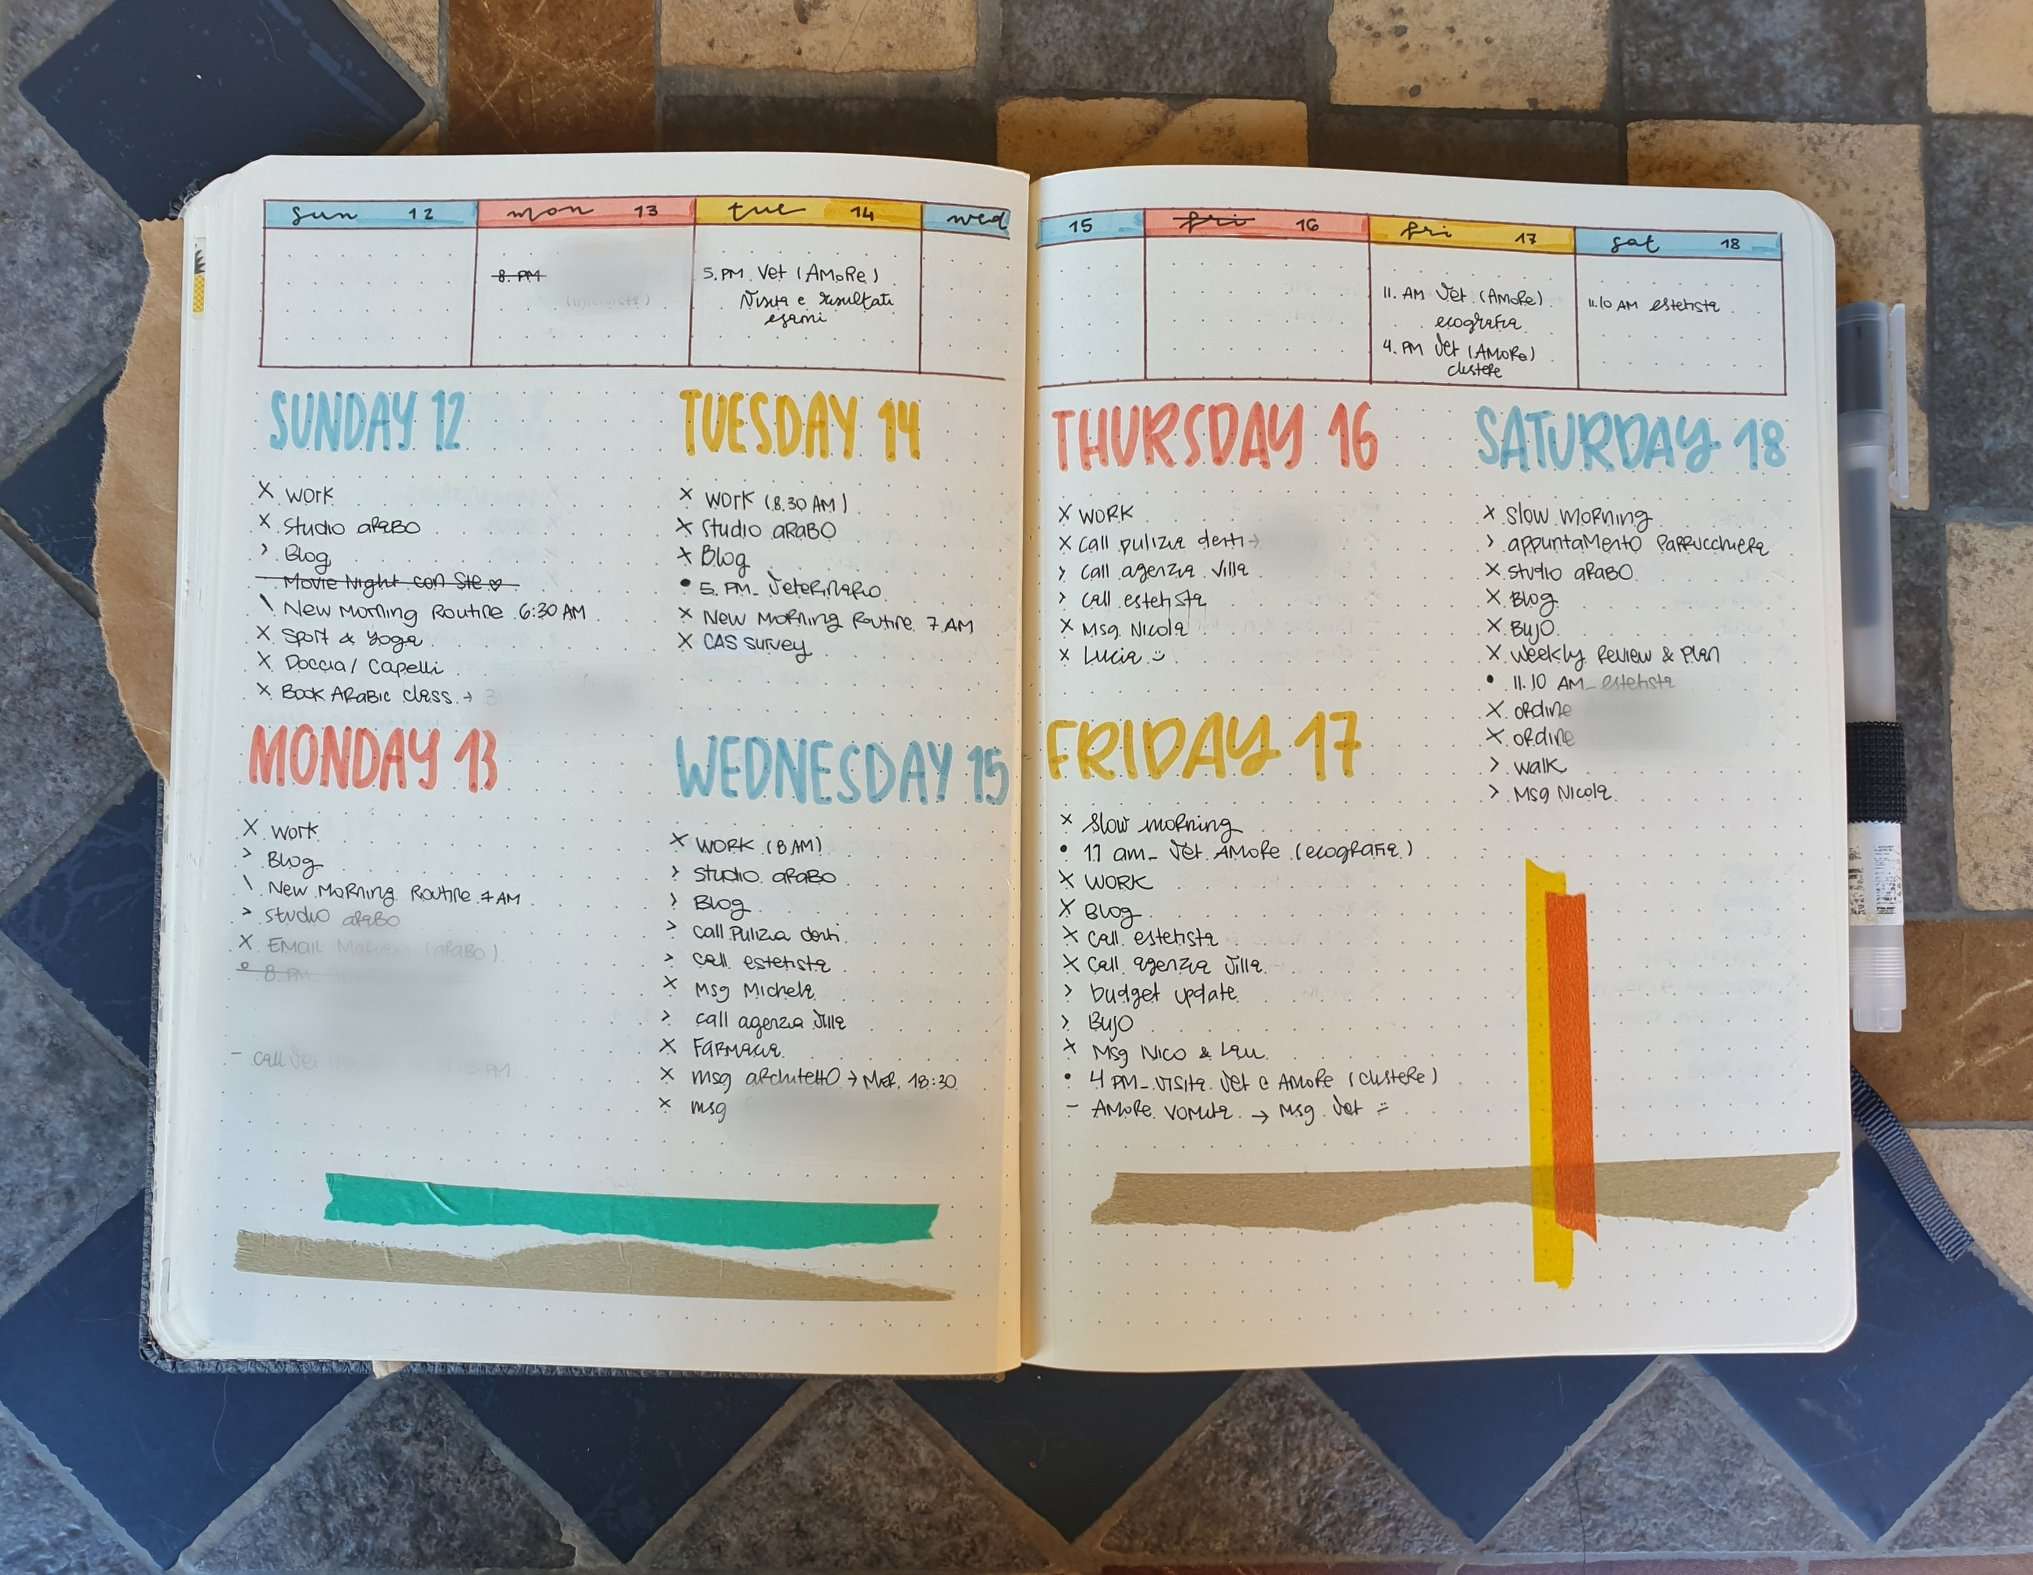 sun 12
mon 13
tue 14
wed 15
fri 16
fri 17
sat 18
8. PM
5. PM Vet (AMoRe)
Visita e risultati
esami
11. AM Vet (AMoRe)
ecografia
4. PM Vet (AMoRe)
clistere
11.10 AM estetista
SUNDAY 12
X WORK
X Studio aRaBO
> Blog
– Movie Night con Ste ♡
\ New Morning Routine 6:30 AM
X Sport & Yoga
X Doccia / Capelli
X Book ARaBic class →
MONDAY 13
X Work
> Blog
\ New Morning Routine 7 AM
> Studio aRaBO
X EMAIL (aRaBO)
8 PM
– call Vet PM
TUESDAY 14
X WORK (8.30 AM)
X Studio aRaBO
X Blog
• 5 PM_ Veterinario
X New Morning Routine 7 AM
X CAS survey
WEDNESDAY 15
X WORK (8 AM)
> Studio aRaBO
> Blog
> call Pulizia denti
> call estetista
X Msg Michela
> call agenzia Villa
X FaRMacia
X msg architetto → Mer. 18:30
X msg
THURSDAY 16
X WORK
X call pulizia denti →
> call agenzia Villa
> call estetista
X Msg Nicola
X Lucia :)
FRIDAY 17
X Slow morning
• 11 am_ Vet AMoRe (ecografia)
X WORK
X Blog
X call estetista
X call agenzia Villa
> budget update
> BuJO
X Msg Nico & Lau
• 4 PM_ visita Vet e AMoRe (clistere)
– AMoRe vomita → Msg Vet :)
SATURDAY 18
X Slow Morning
> appuntaMento PaRRucchieRa
X Studio aRaBO
X Blog
X BuJO
X Weekly Review & Plan
• 11.10 AM_ estetista
X ordine
X ordine
> walk
> Msg Nicola